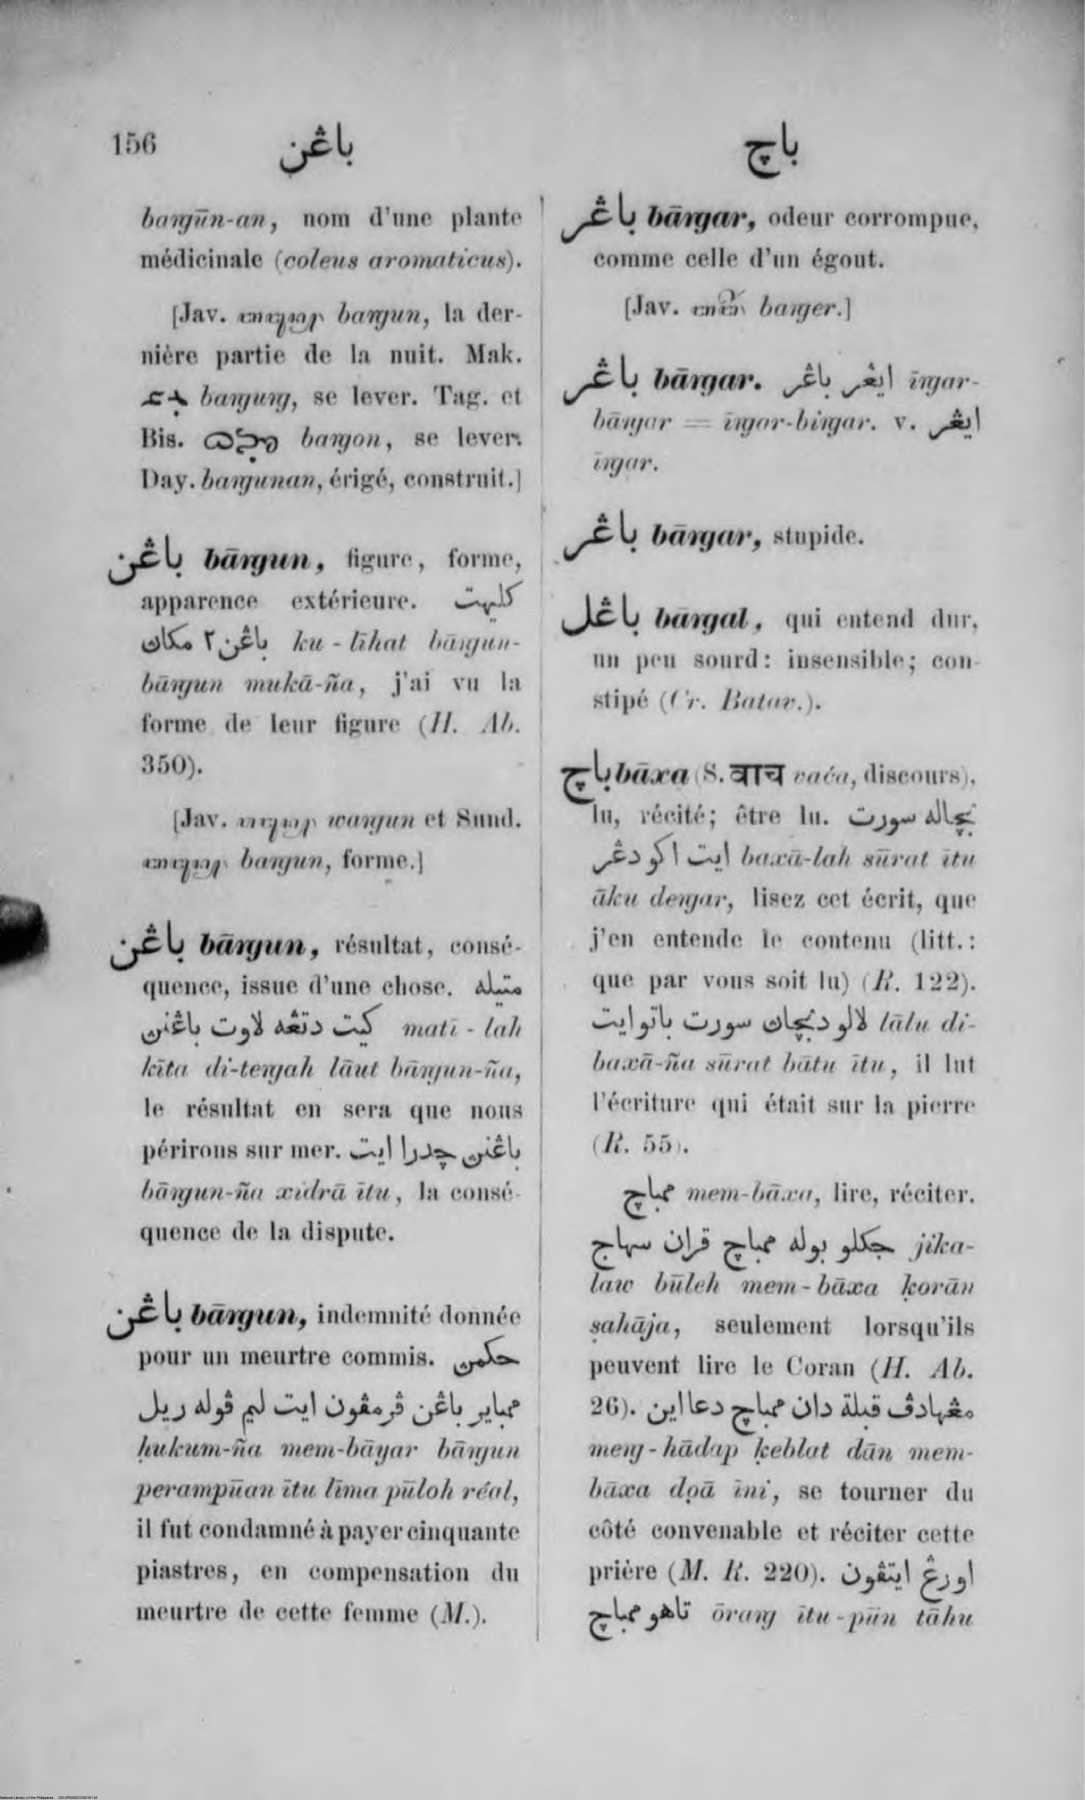 156
باڠن
باچ
baŋūn-an, nom d'une plante
médicinale (coleus aromaticus).
[Jav. baŋun, la der-
nière partie de la nuit. Mak.
baŋuŋ, se lever. Tag. et
Bis. baŋon, se lever.
Day. baŋunan, érigé, construit.]
باڠن bāŋun, figure, forme,
apparence extérieure. كليهت
باڠن٢ مكاڽ ku-līhat bāŋun-
bāŋun mukā-ña, j'ai vu la
forme de leur figure (H. Ab.
350).
[Jav. waŋun et Sund.
baŋun, forme.]
باڠن bāŋun, résultat, consé-
quence, issue d'une chose. متيله
كيت دتڠه لاوت باڠنڽ mati-lah
kīta di-teŋah lāut bāŋun-ña,
le résultat en sera que nous
périrons sur mer. باڠنڽ چدرا ايت
bāŋun-ña xidrā ītu, la consé-
quence de la dispute.
باڠن bāŋun, indemnité donnée
pour un meurtre commis. حكمڽ
ممباير باڠن ڤرمڤون ايت ليم ڤوله ريل
ḥukum-ña mem-bāyar bāŋun
perampūan ītu līma pūloh réal,
il fut condamné à payer cinquante
piastres, en compensation du
meurtre de cette femme (M.).
باڠر bāŋar, odeur corrompue,
comme celle d'un égout.
[Jav. baŋer.]
باڠر bāŋar. ايڠر باڠر īŋar-
bāŋar = īŋar-biŋar. v. ايڠر
īŋar.
باڠر bāŋar, stupide.
باڠل bāŋal, qui entend dur,
un peu sourd: insensible; con-
stipé (Cr. Batav.).
باچ bāxa (S. वाच vaća, discours),
lu, récité; être lu. بچاله سورت
ايت اكو دڠر baxā-lah sūrat ītu
āku deŋar, lisez cet écrit, que
j'en entende le contenu (litt.:
que par vous soit lu) (R. 122).
لالو دبچاڽ سورت باتو ايت lālu di-
baxā-ña sūrat bātu ītu, il lut
l'écriture qui était sur la pierre
(R. 55).
ممباچ mem-bāxa, lire, réciter.
جكلو بوله ممباچ قران سهاج jika-
law būleh mem-bāxa ḳorān
ṣahāja, seulement lorsqu'ils
peuvent lire le Coran (H. Ab.
26). مڠهادڤ قبلة دان ممباچ دعا اين
meŋ-hādap ḳeblat dān mem-
bāxa doā īni, se tourner du
côté convenable et réciter cette
prière (M. R. 220). اورڠ ايتڤون
تاهو ممباچ ōraŋ ītu-pūn tāhu